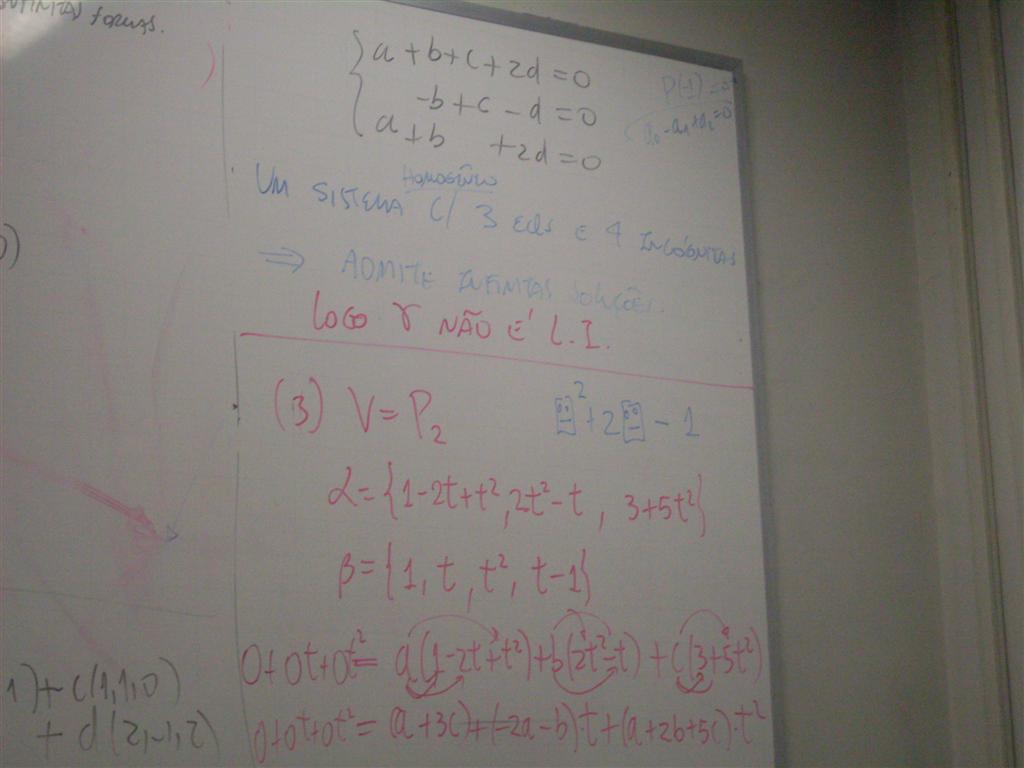 INFINITAS FORMAS.
a + b + c + 2d = 0
-b + c - d = 0
a + b + 2d = 0
P(-1) = 0
a₀ - a₁ + a₂ = 0
HOMOGÊNEO
UM SISTEMA C/ 3 EQS E 4 INCÓGNITAS
⇒ ADMITE INFINITAS SOLUÇÕES.
LOGO γ NÃO É L.I.
(3) V = P₂
² + 2 - 1
α = {1-2t+t², 2t²-t, 3+5t²}
β = {1, t, t², t-1}
0+0t+0t² = a(1-2t+t²)+b(2t²-t)+c(3+5t²)
0+0t+0t² = (a+3c)+(-2a-b)·t+(a+2b+5c)·t²
1)+c(1,1,0)
+ d(2,-1,2)